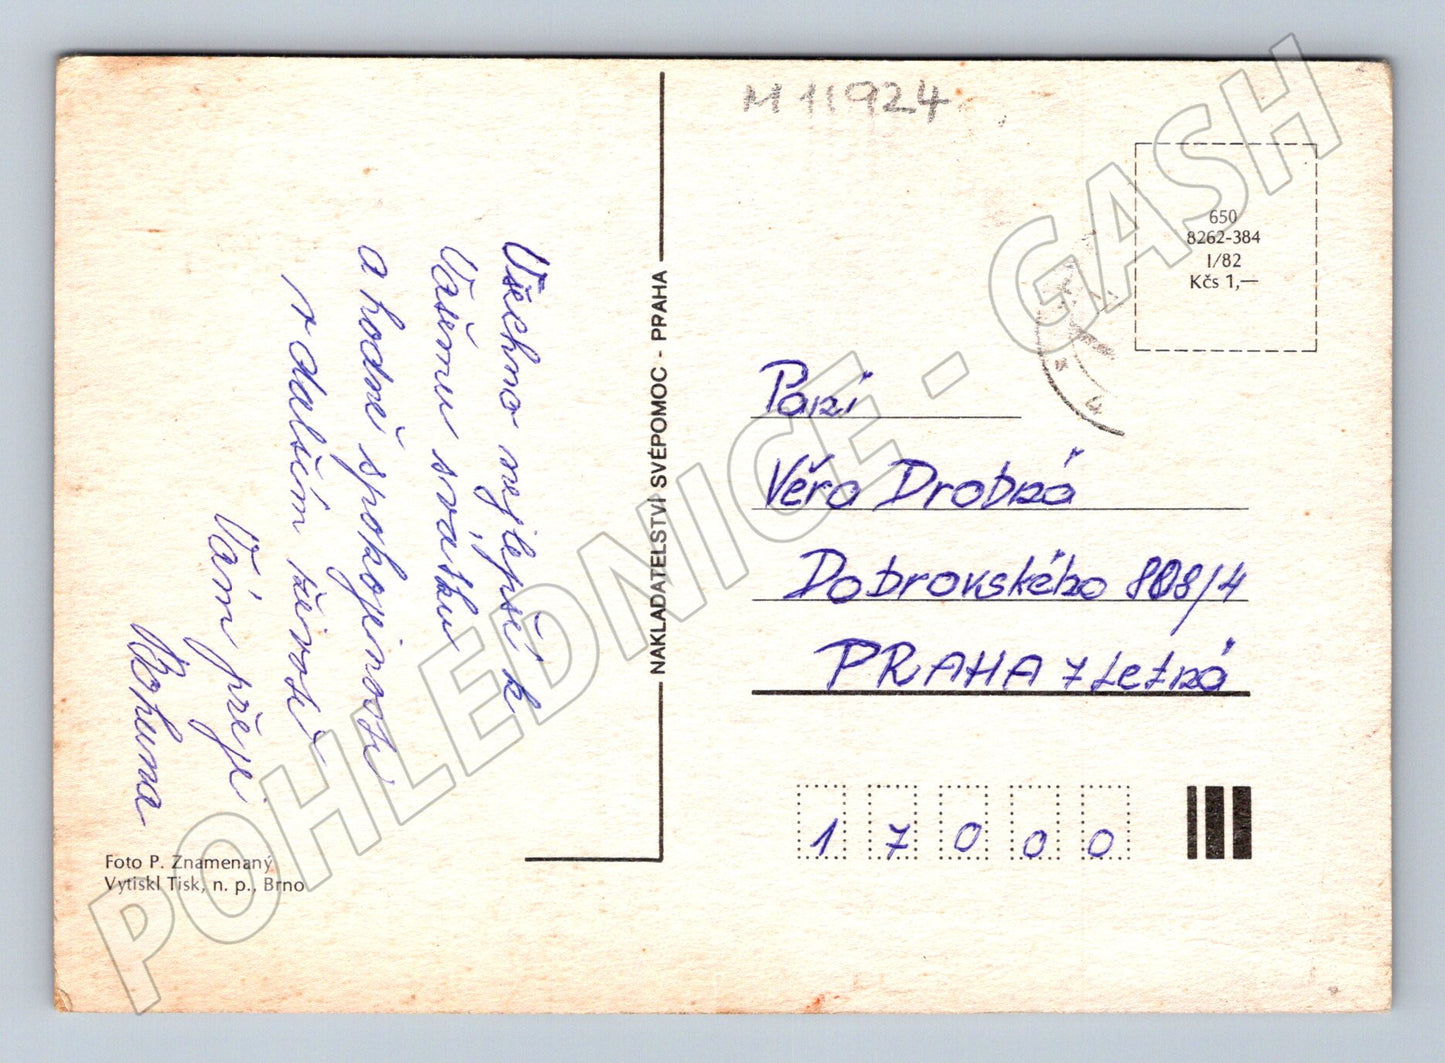 M 11924
650
8262-384
I/82
Kčs 1,—
Všechno nejlepší k
Vašemu svátku
a hodně spokojenosti
v dalším životě
Vám přeje
Bohuna
NAKLADATELSTVÍ SVÉPOMOC - PRAHA
Paní
Věra Drobná
Dobrovského 808/4
PRAHA 7 Letná
17000
Foto P. Znamenaný
Vytiskl Tisk, n. p., Brno
POHLEDNICE - GASH